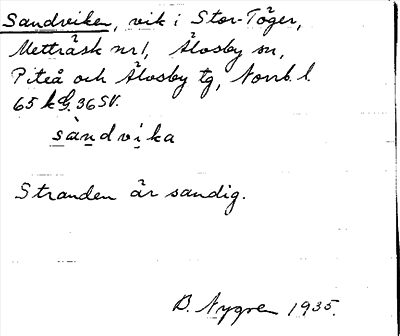 Sandviken, vik i Stor-Töger,
Metträsk nr 1, Älvsby sn,
Piteå och Älvsby tg, Norrb. l.
65 kG. 36 SV.
sàndvika
Stranden är sandig.
B. Nygren 1935.